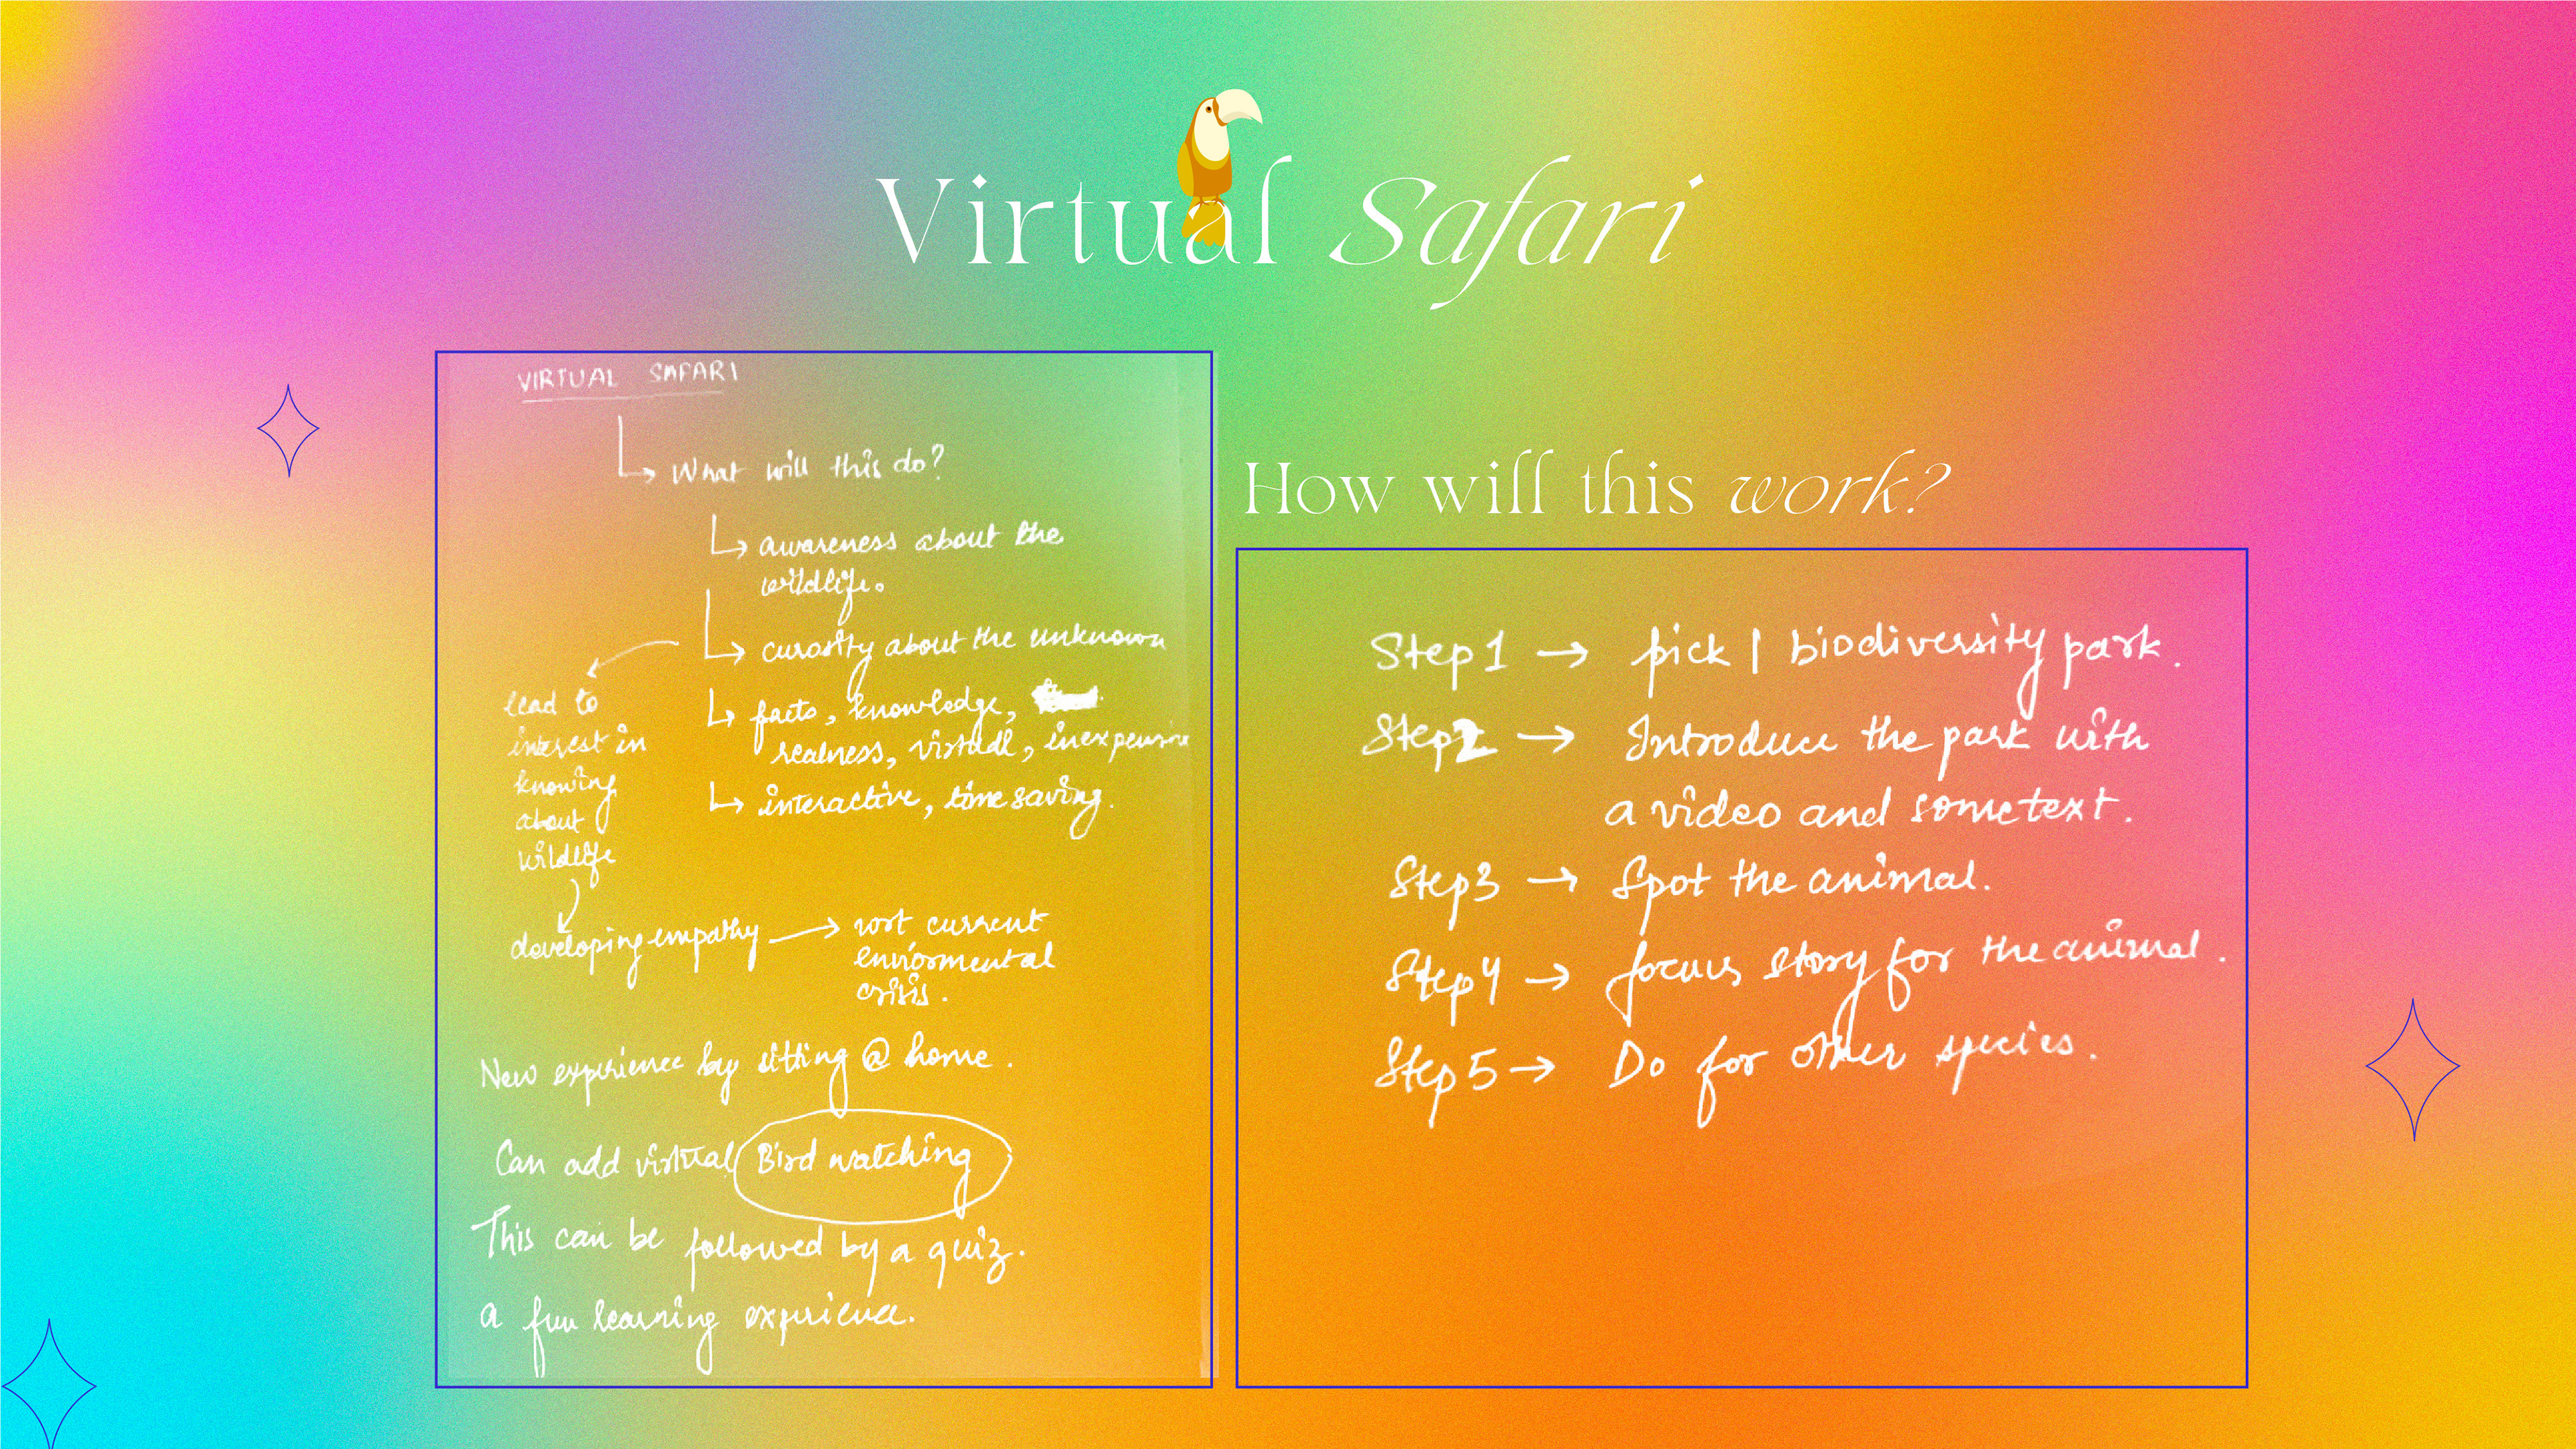 Virtual Safari
VIRTUAL SAFARI
What will this do?
awareness about the
wildlife.
curosity about the unknown
lead to
interest in
knowing
about
wildlife
facts, knowledge,
realness, virtual, inexpensive
interactive, time saving.
developing empathy → wrt current
enviormental
crisis.
New experience by sitting @ home.
Can add virtual Bird watching
This can be followed by a quiz.
a fun learning experience.
How will this work?
Step 1 → pick 1 biodiversity park.
Step 2 → Introduce the park with
a video and some text.
Step 3 → Spot the animal.
Step 4 → focus story for the animal.
Step 5 → Do for other species.